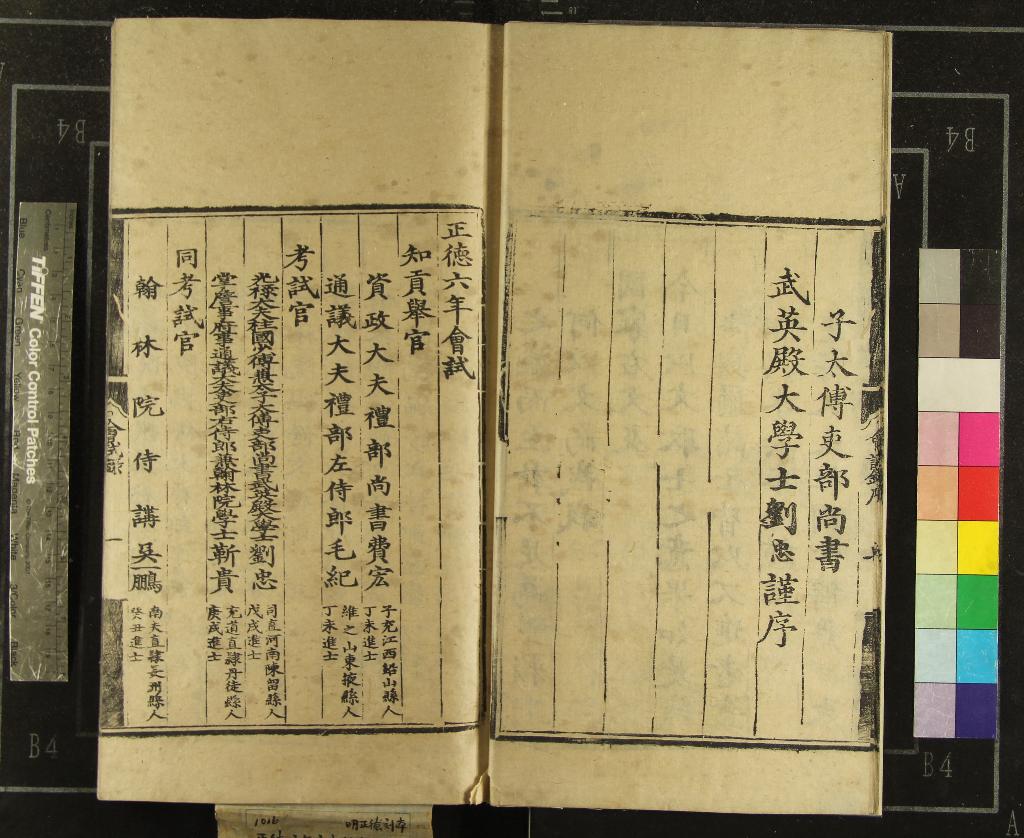 子太傅吏部尚書
武英殿大學士劉忠謹序
正德六年會試
知貢舉官
資政大夫禮部尚書費宏
子充江西鉛山縣人
丁未進士
通議大夫禮部左侍郎毛紀
維之山東掖縣人
丁未進士
考試官
光祿大夫柱國少傅兼太子太傅吏部尚書武英殿大學士劉忠
司直河南陳留縣人
戊戌進士
掌詹事府事通議大夫吏部右侍郎兼翰林院學士靳貴
充道直隸丹徒縣人
庚戌進士
同考試官
翰林院侍講吳一鵬
南夫直隸長洲縣人
癸丑進士
會試錄
一
會試錄序
B4
B4
B4
B4
A
A
TIFFEN Color Control Patches
1016
明正德刻本